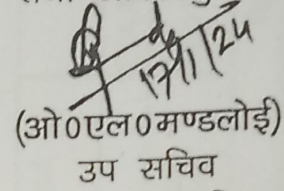 17/1/24
(ओ०एल०मण्डलोई)
उप सचिव